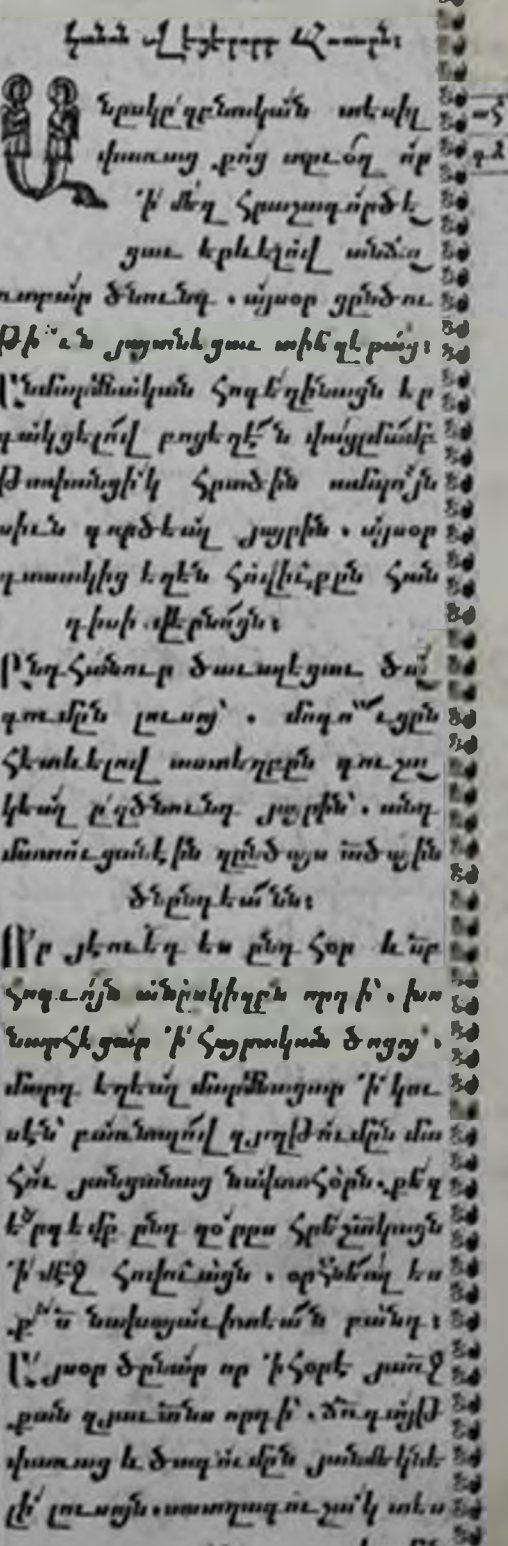 նըսկըզբնական տեսիլ
փառաց քոց
ի մեզ հրաշագործե
ցաւ երևելով անճա
ռաբար ծնունդ. այսօր ցընծու
թիւն յայտնեցաւ տիեզերաց։
Անմարմնական հոգեղինացն եր
գակցելով բոցեղէն փայլմամբ
թափանցիկ հրածին ամպոյն
սիւն գործեալ յայրին. այսօր
դասակից եղեն հովիւքըն հան
դիսի վերնոցն։
Ընդհանուր ծաւալեցաւ ծա
գումըն լուսոյ. մոգուցըն
հետևելով աստեղըն գուշա
կեալ զծնունդ յայրին. անդ
մատուցանէին զընծայս ածային
ծնընդեանն։
Որ յէութեդ ես ընդ հօր և սբ
հոգւոյն անըսկիզբըն որդի. խո
նարհեցար ի հայրական ծոցոյ.
մարդ եղեալ մարմնացար ի կու
սէն բառնալով մա
հու յանցանաց նախահօրն. քեզ
երգեմք ընդ զօրըս հրեշտակացն
ի մէջ հովուացն. օրհնեալ ես
քս ած նախայաւիտեան բանդ։
Այսօր ծընար որ ի հօրէ յառջ
քան զյաւտնս որդի. ճռագայթ
փառաց և ծագումըն յանմեկնե
լի լուսոյն. աստղագուշակ տես